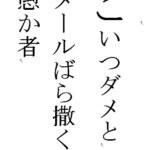 こいつダメと
メールばら撒く
愚か者